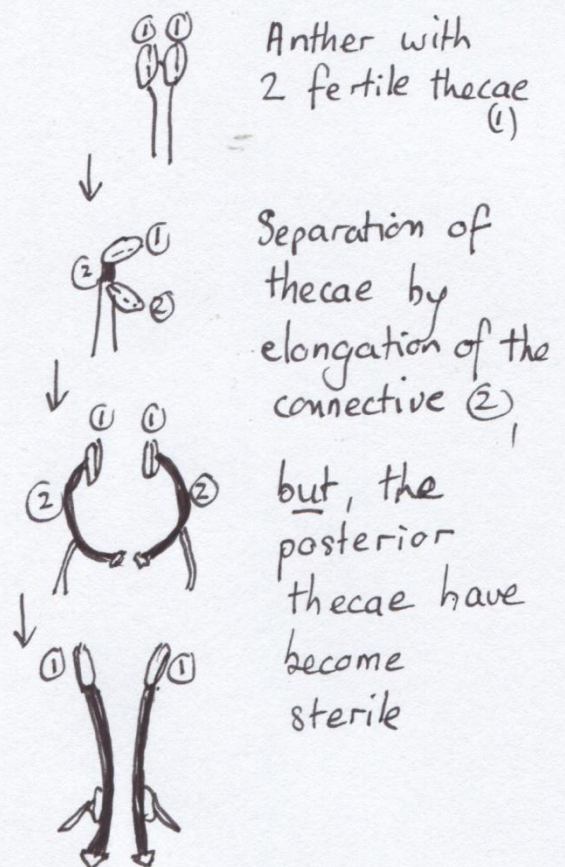 ① ①
Anther with
2 fertile thecae
(1)
①
②
②
Separation of
thecae by
elongation of the
connective ②,
① ①
② ②
but, the
posterior
thecae have
become
sterile
① ①